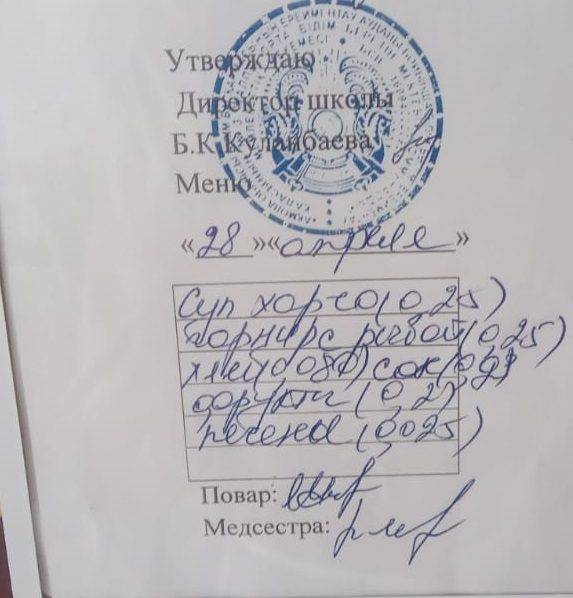 Утверждаю
Директор школы
Б.К Куланбаева
Меню
«28»«апреля»
Суп харчо(0,25)
Гарнирс рыбой(0,25)
хлеб(0,080)сок(0,2)
фрукты (0,2)
печенье (0,025)
Повар:
Медсестра: